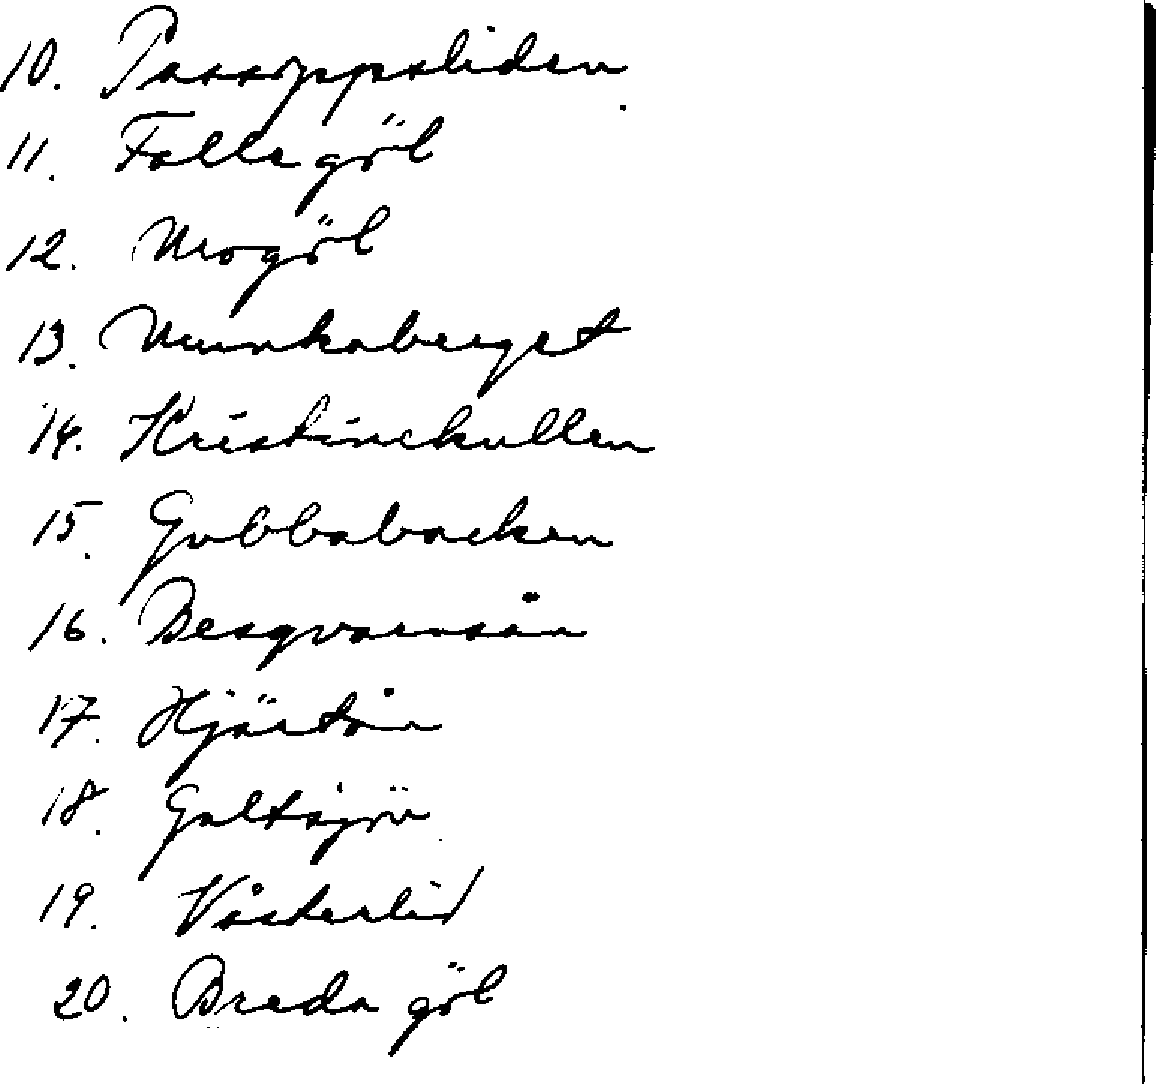 10. Passoppsliden
11. Falla göl
12. Mogöl
13. Munkaberget
14. Kristinekullen
15. Gubbabacken
16. Besqvarnsån
17. Hjärtån
18. Galtsjön
19. Våsterlid
20. Breda göl